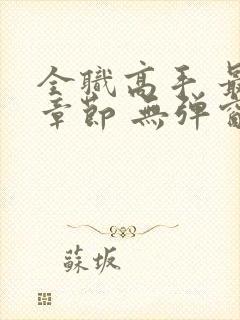 全職高手 最
章節 無彈窗
蘇坂